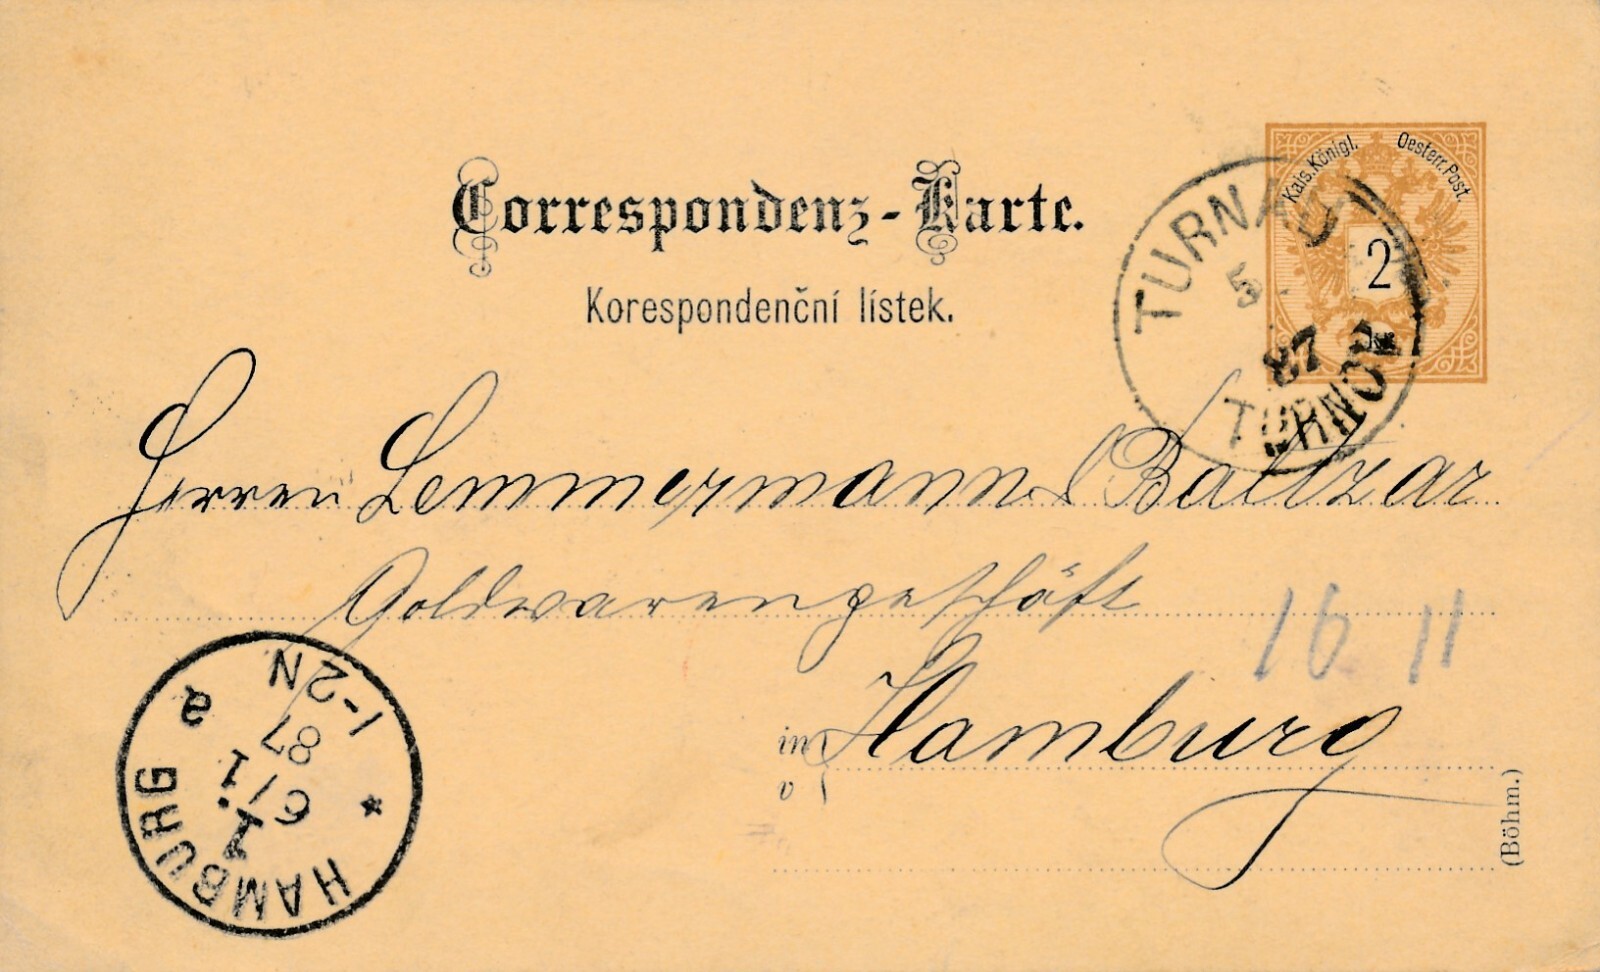 Correspondenz-Karte.
Korespondenční lístek.
Kais. Königl. Oesterr. Post.
2
kr.
TURNAU
5
87
TURNOV
Herren Lemmermann & Baltzar
Goldwarengeschäft
16 11
in
v
Hamburg
(Böhm.)
HAMBURG
1.
6/1
87
1-2N
*